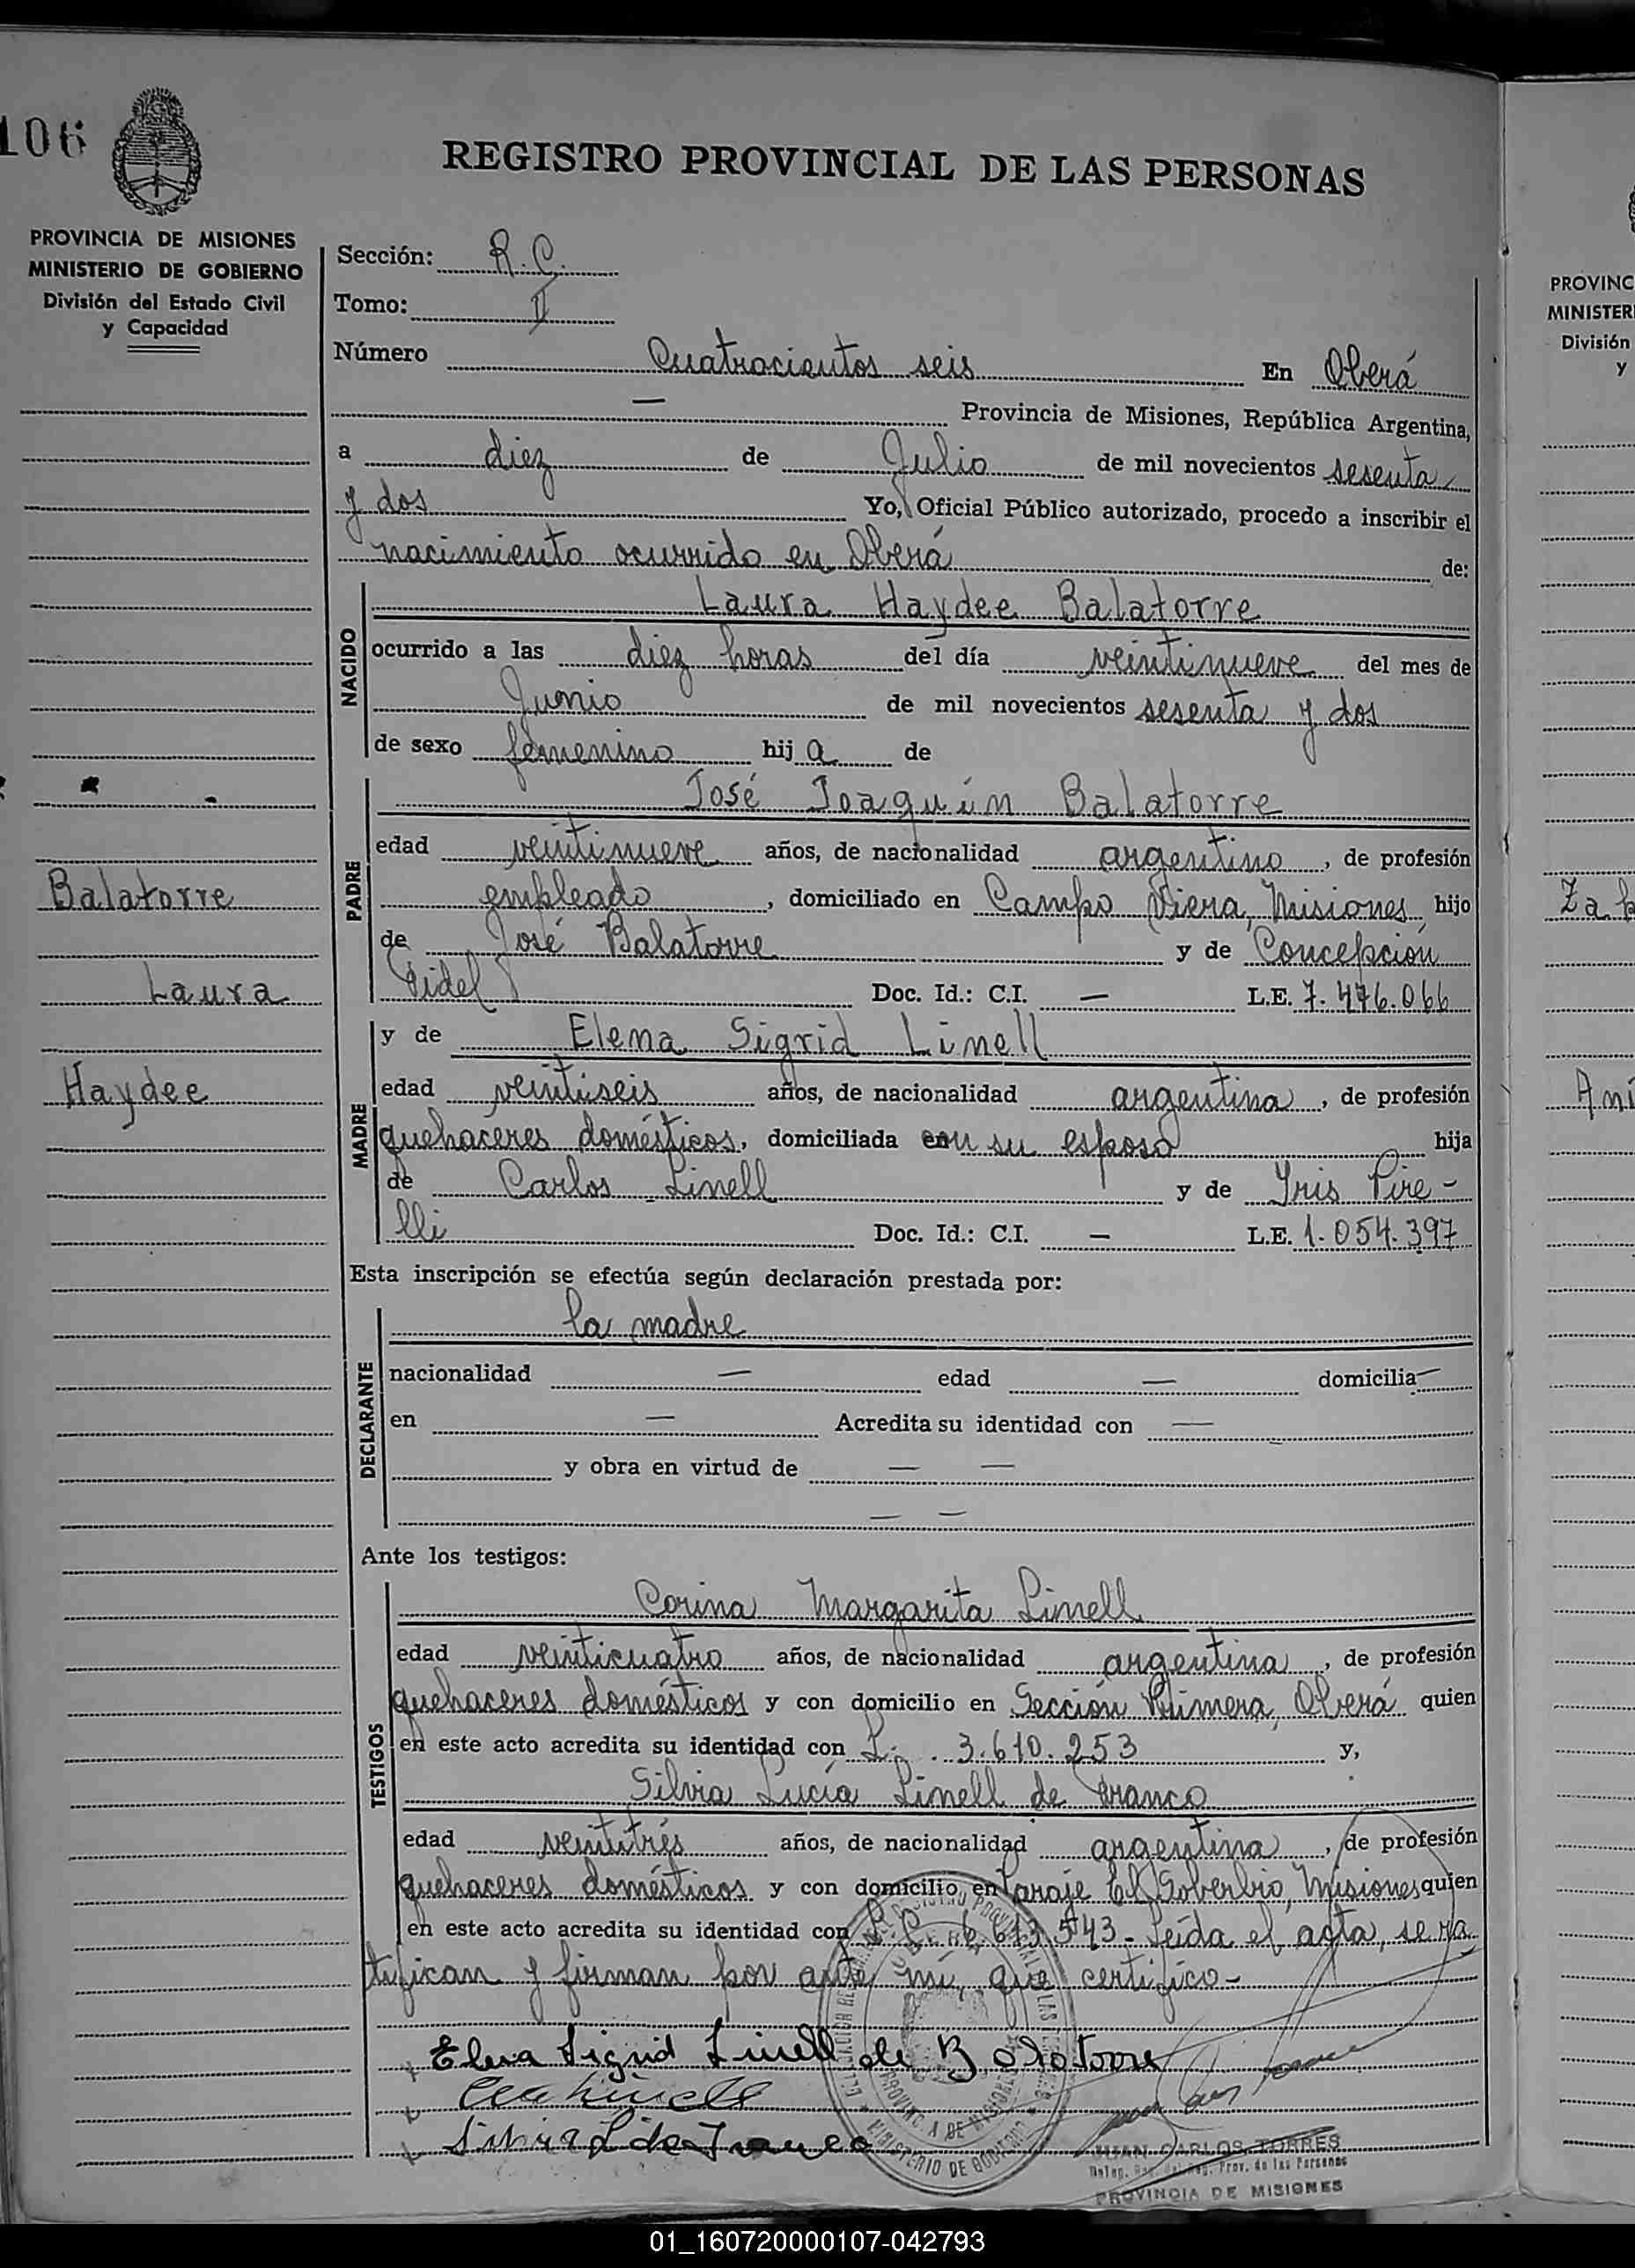 106
REGISTRO PROVINCIAL DE LAS PERSONAS
PROVINCIA DE MISIONES
MINISTERIO DE GOBIERNO
División del Estado Civil
y Capacidad
Sección: R.C.
Tomo: II
Número Cuatrocientos seis En Oberá
— Provincia de Misiones, República Argentina,
a diez de Julio de mil novecientos sesenta
y dos Yo, Oficial Público autorizado, procedo a inscribir el
nacimiento ocurrido en Oberá de:
NACIDO
Laura Haydee Balatorre
ocurrido a las diez horas del día veintinueve del mes de
Junio de mil novecientos sesenta y dos
de sexo femenino hija de
PADRE
José Joaquín Balatorre
edad veintinueve años, de nacionalidad argentino, de profesión
empleado, domiciliado en Campo Viera, Misiones hijo
de José Balatorre y de Concepción
Fidel Doc. Id.: C.I. — L.E. 7.476.066
MADRE
y de Elena Sigrid Linell
edad veintiseis años, de nacionalidad argentina, de profesión
quehaceres domésticos, domiciliada con su esposo hija
de Carlos Linell y de Yris Pire-
lli Doc. Id.: C.I. — L.E. 1.054.397
Balatorre
Laura
Haydee
Esta inscripción se efectúa según declaración prestada por:
DECLARANTE
la madre
nacionalidad — edad — domicilia —
en — Acredita su identidad con —
y obra en virtud de — —
— —
Ante los testigos:
TESTIGOS
Corina Margarita Linell
edad veinticuatro años, de nacionalidad argentina, de profesión
quehaceres domésticos y con domicilio en Sección Primera, Oberá quien
en este acto acredita su identidad con 3.610.253 y,
Silvia Lucía Linell de Franco
edad veintitrés años, de nacionalidad argentina, de profesión
quehaceres domésticos y con domicilio en Paraje El Soberbio, Misiones quien
en este acto acredita su identidad con L.C. 6.613.543- Leída el acta, se ra
tifican y firman por ante mí, que certifico-
Elena Sigrid Linell de Balatorre
Linell
Silvia L de Franco
JUAN CARLOS TORRES
Prov. de las Personas
PROVINCIA DE MISIONES
MINISTERIO DE GOBIERNO
PROVINC
MINISTER
División
y
Zab
Ani
01_160720000107-042793